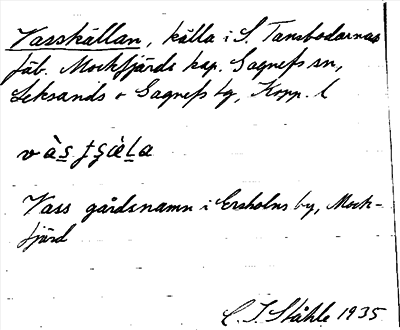 Vasskällan, källa i S. Tansbodarnas
fäb. Mockfjärds kap. Gagnefs sn,
Leksands o Gagnefs tg, Kopp. l
Vass gårdsnamn i Ersholns by, Mock-
fjärd
C. I. Ståhle 1935